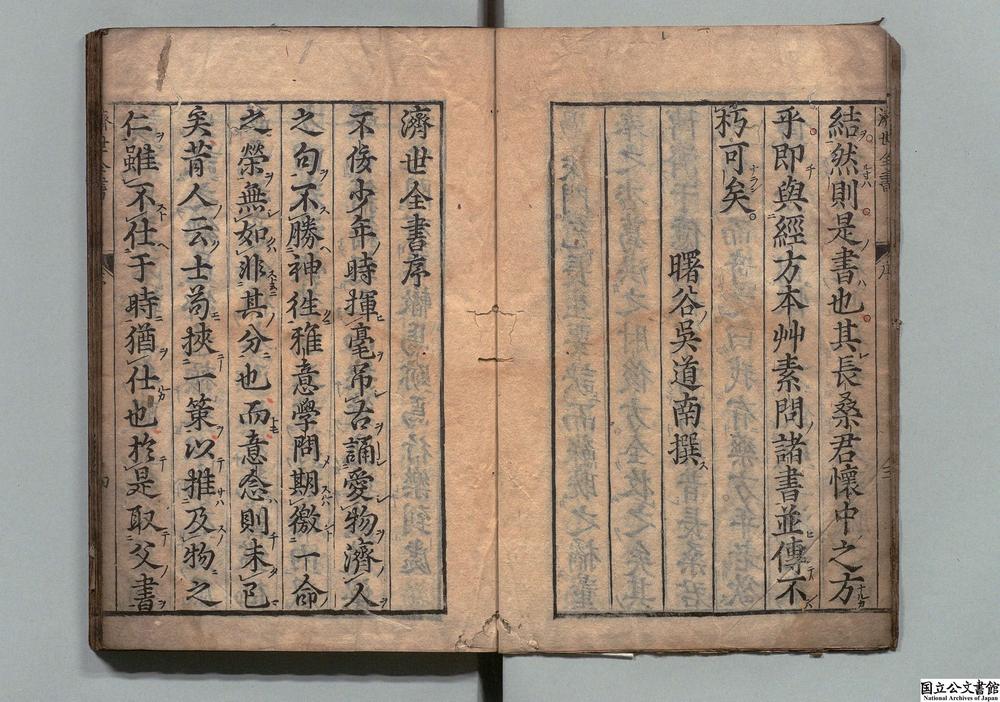 結然則是書也其長桑君懷中之方
乎即與經方本艸素問諸書並傳不
朽可矣
曙谷吳道南撰
濟世全書序
不佞少年時揮毫吊古誦愛物濟人
之句不勝神往雅意學問期徼一命
之榮無如非其分也而意念則未已
矣昔人云士苟挾一策以推及物之
仁雖不仕于時猶仕也於是取父書
濟世全書
序
国立公文書館
National Archives of Japan